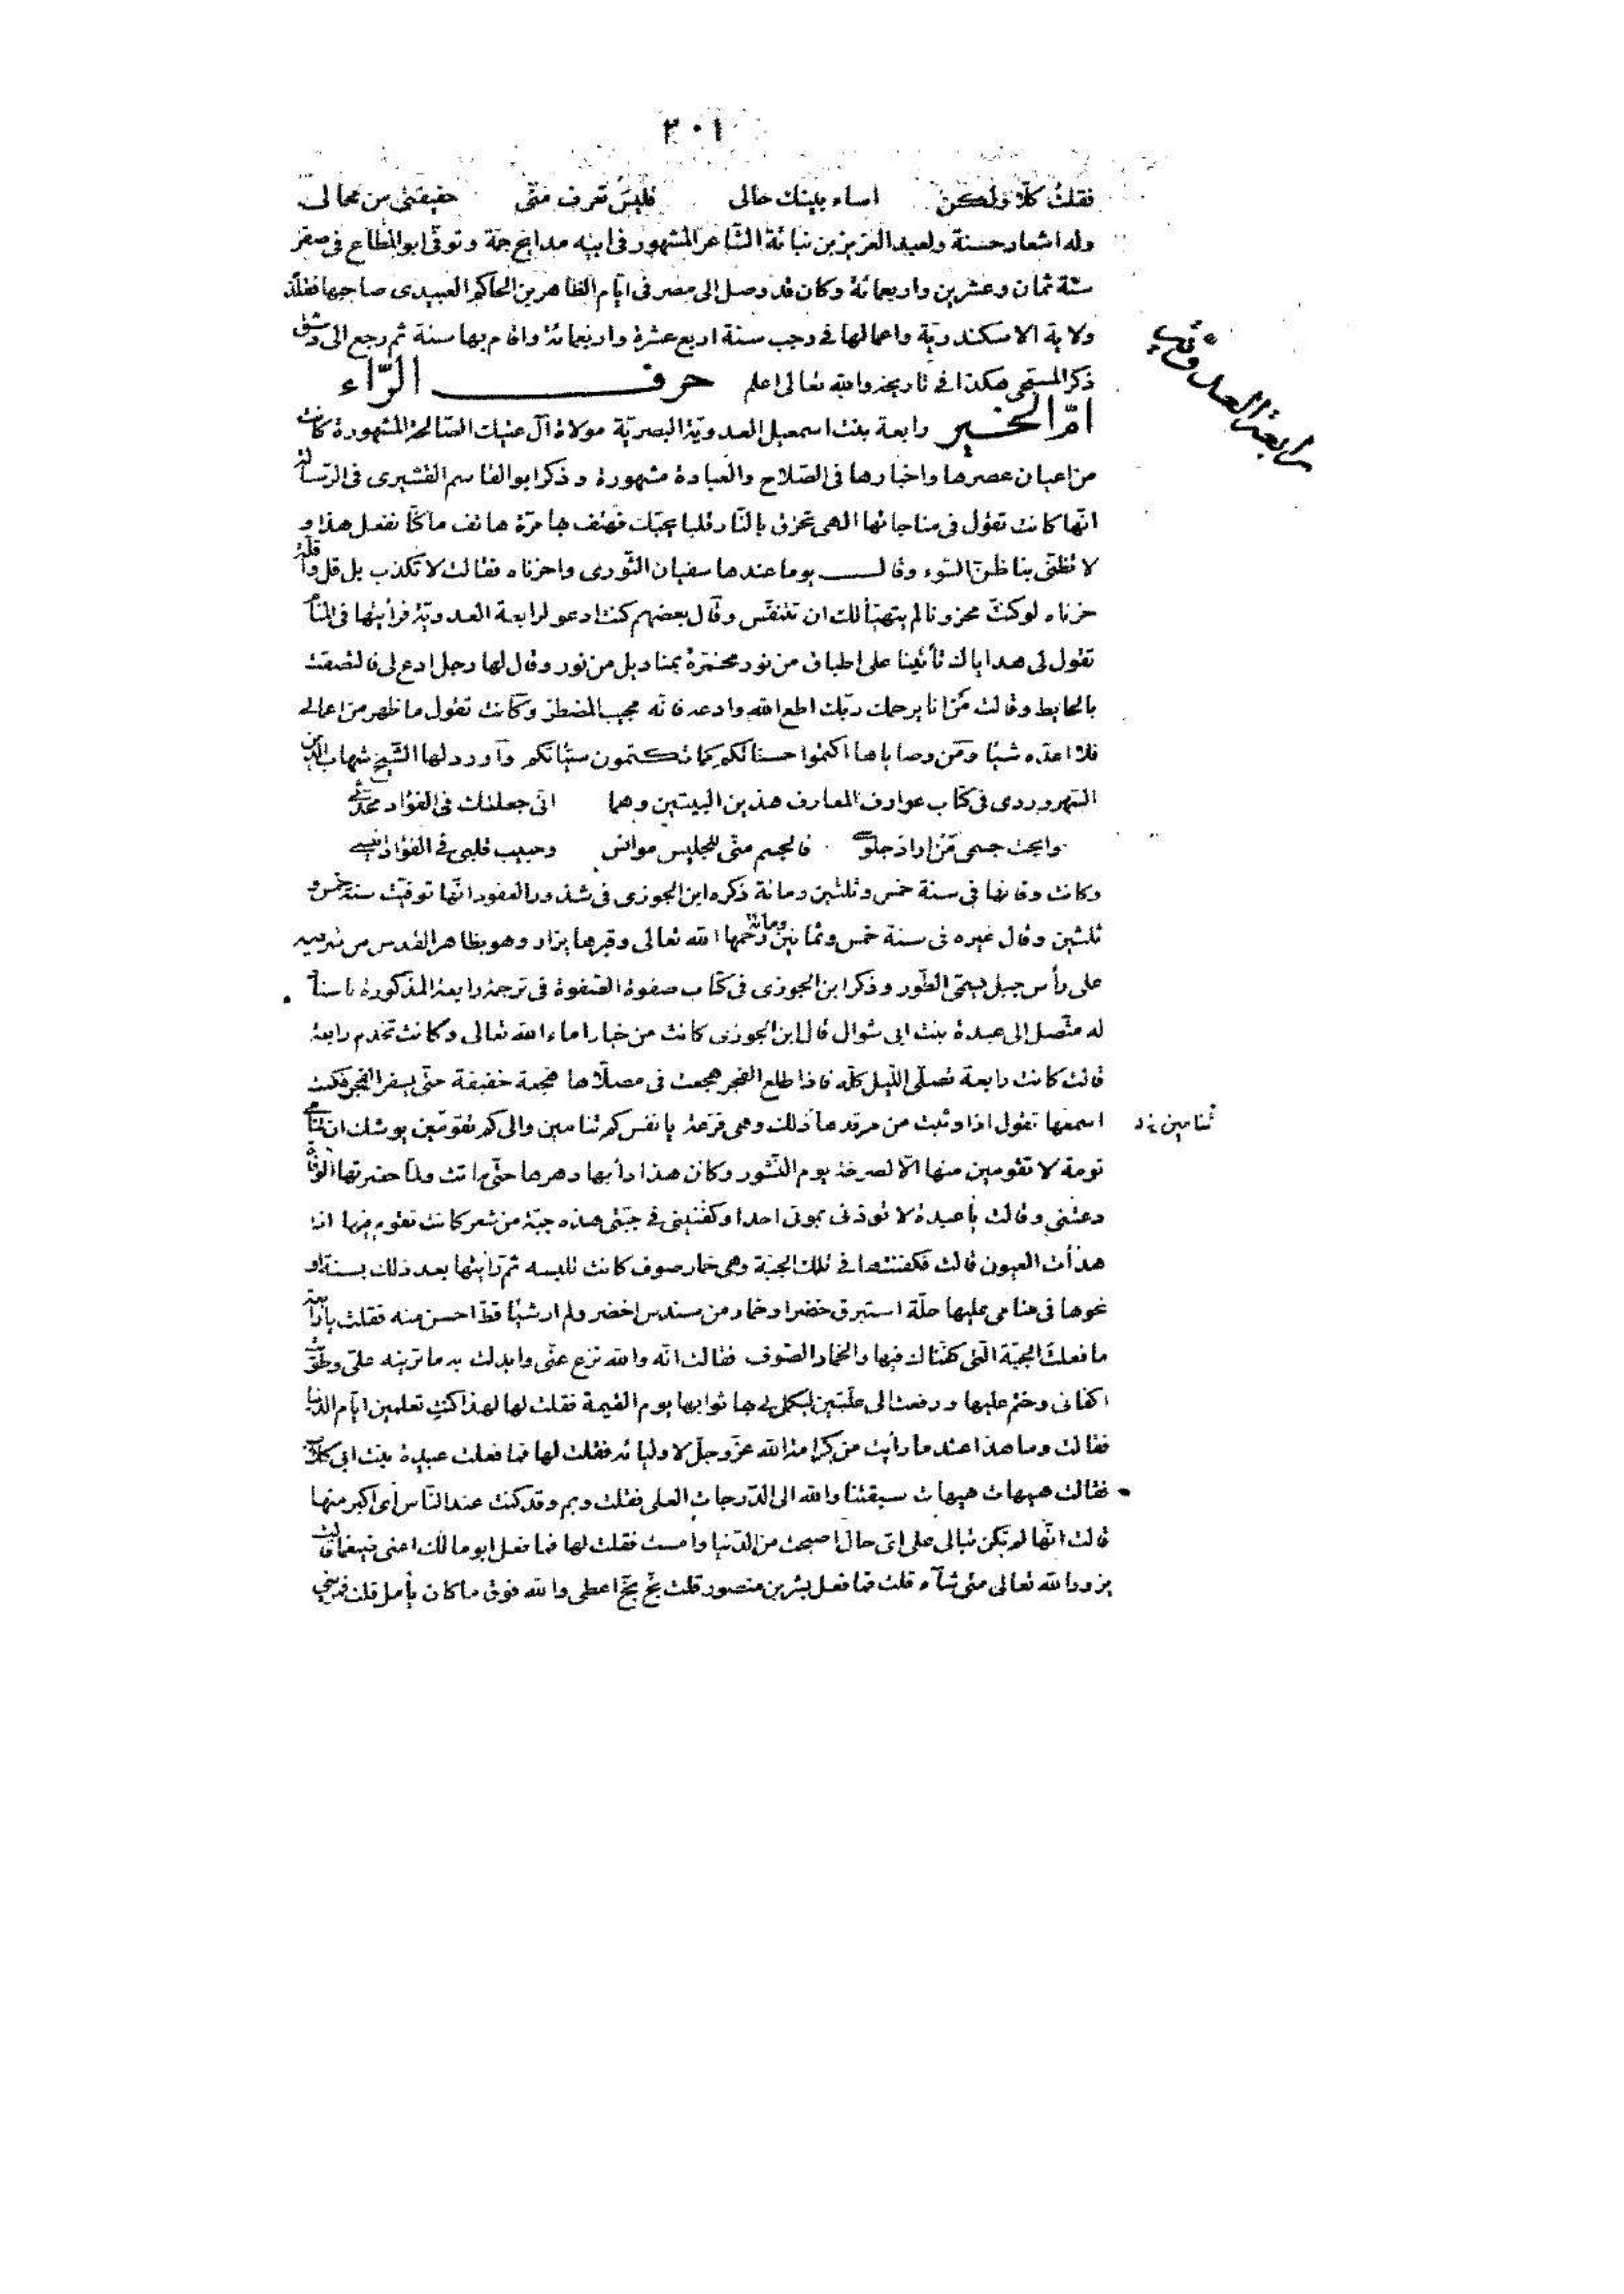 ٢٠١
فقلت كلا ولكن اساء بينك حالى فليس تعرف منّى حقيقتى من محالى
وله اشعار حسنة ولعبد العزيز بن نباتة الشاعر المشهور فى ابيه مدايح جمّة وتوفّى ابو المطاع فى صفر
سنة ثمان وعشرين واربعمائة وكان قد وصل الى مصر فى ايّام الظاهر بن الحاكم العبيدى صاحبها فقلّده
ولاية الاسكندريّة واعمالها فى رجب سنة اربع عشرة واربعمائة واقام بها سنة ثم رجع الى دمشق
ذكر المسبحى هكذا فى تاريخه والله تعالى اعلم حرف الرّاء
رابعة العدويّة
امّ الخير رابعة بنت اسمعيل العدويّة البصريّة مولاة آل عتيك الصّالحة المشهورة كانت
من اعيان عصرها واخبارها فى الصّلاح والعبادة مشهورة وذكر ابو القاسم القشيرى فى الرّسالة
انّها كانت تقول فى مناجاتها الهى تحرق بالنّار قلبا يحبّك فهتف بها مرّة هاتف ما كنّا نفعل هذا و
لا تظنّى بنا ظنّ السّوء وقال يوما عندها سفيان الثّورى واحزناه فقالت لا تكذب بل قل واقلّة
حزناه لو كنت محزونا لم يتهيّأ لك ان تتنفّس وقال بعضهم كنت ادعو لرابعة العدويّة فرأيتها فى المنام
تقول لى هداياك تأتينا على اطباق من نور مخمّرة بمناديل من نور وقال لها رجل ادع لى فالتصقت
بالحايط وقالت من انا يرحمك ربّك اطع الله وادعه فانّه مجيب المضطرّ وكانت تقول ما ظهر من اعمالى
فلا اعدّه شيئا ومن وصاياها اكتموا حسناتكم كما تكتمون سيّئاتكم واورد لها الشّيخ شهاب الدّين
السّهروردى فى كتاب عوارف المعارف هذين البيتين وهما انّى جعلتك فى الفؤاد محدّثى
وابحت جسمى من اراد جلوسى فالجسم منّى للجليس موانس وحبيب قلبى فى الفؤاد انيسى
وكانت وفاتها فى سنة خمس وثلثين ومائة ذكره ابن الجوزى فى شذور العقود انّها توفّيت سنة خمس و
ثلثين وقال غيره فى سنة خمس وثمانين ومائة رحمها الله تعالى وقبرها يزار وهو بظاهر القدس من شرقيه
على رأس جبل يسمّى الطّور وذكر ابن الجوزى فى كتاب صفوة الصّفوة فى ترجمة رابعة المذكورة باسناد
له متّصل الى عبدة بنت ابى شوال قال ابن الجوزى كانت من خيار اماء الله تعالى وكانت تخدم رابعة
قالت كانت رابعة تصلّى اللّيل كلّه فاذا طلع الفجر هجعت فى مصلّاها هجعة خفيفة حتّى يسفر الفجر فكنت
اسمعها تقول اذا وثبت من مرقدها ذلك وهى فزعة يا نفس كم تنامين والى كم تقومين يوشك ان تنامى
تنامين
نومة لا تقومين منها الّا لصرخة يوم النّشور وكان هذا دأبها دهرها حتّى ماتت ولمّا حضرتها الوفاة
دعتنى وقالت يا عبدة لا توذنى بموتى احدا وكفّنينى فى جبّتى هذه جبّة من شعر كانت تقوم فيها اذا
هدأت العيون قالت فكفّنتها فى تلك الجبّة وهى خمار صوف كانت تلبسه ثم رأيتها بعد ذلك بسنة او
نحوها فى منامى عليها حلّة استبرق خضرا وخمار من سندس اخضر ولم ار شيئا قطّ احسن منه فقلت يا رابعة
ما فعلت الجبّة الّتى كفّنّاك فيها والخمار الصّوف فقالت انّه والله نزع عنّى وابدلت به ما ترينه علىّ وطويت
اكفانى وختم عليها ورفعت الى علّيّين ليكمل لى بها ثوابها يوم القيمة فقلت لها لهذا كنت تعلمين ايّام الدّنيا
فقالت وما هذا عند ما رأيت من كرامة الله عزّ وجلّ لاوليائه فقلت لها فما فعلت عبيدة بنت ابى كلاب
فقالت هيهات هيهات سبقتنا والله الى الدّرجات العلى فقلت وبم وقد كنت عند النّاس اى اكبر منها
قالت انّها لم تكن تبالى على اىّ حال اصبحت من الدّنيا وامست فقلت لها فما فعل ابو مالك اعنى ضيغما قالت
يزور الله تعالى متى شآء قلت فما فعل بشر بن منصور قلت بخّ بخّ اعطى والله فوق ما كان يأمل قلت فمرينى